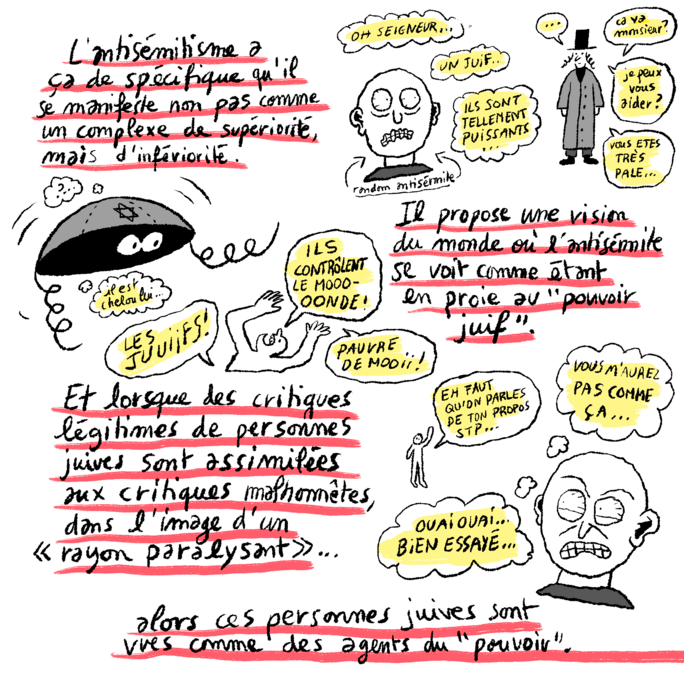 L'antisémitisme a
ça de spécifique qu'il
se manifeste non pas comme
un complexe de supériorité,
mais d'infériorité.
OH SEIGNEUR...
UN JUIF..
ILS SONT
TELLEMENT
PUISSANTS
...
random antisémite
...
ça va
monsieur?
je peux
vous
aider?
VOUS ETES
TRÈS
PALE...
?..
il est
chelou lui...
LES
JUUIIFS!
ILS
CONTRÔLENT
LE MOOO-
OONDE!
PAUVRE
DE MOOii!
Il propose une vision
du monde où l'antisémite
se voit comme étant
en proie au "pouvoir
juif".
Et lorsque des critiques
légitimes de personnes
juives sont assimilées
aux critiques malhonnêtes,
dans l'image d'un
« rayon paralysant»...
EH FAUT
QU'ON PARLES
DE TON PROPOS
STP...
VOUS M'AUREZ
PAS COMME
ÇA...
OUAiOUAi...
BiEN ESSAYÉ...
alors ces personnes juives sont
vues comme des agents du "pouvoir".